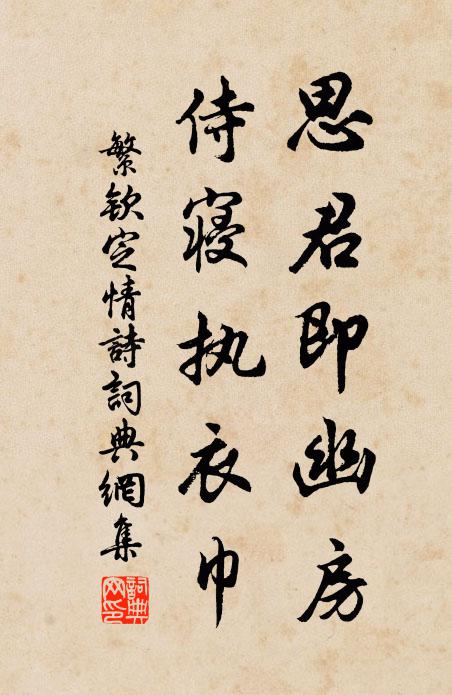 思君即幽房
侍寝执衣巾
繁欽定情詩詞典網集
詞典網印